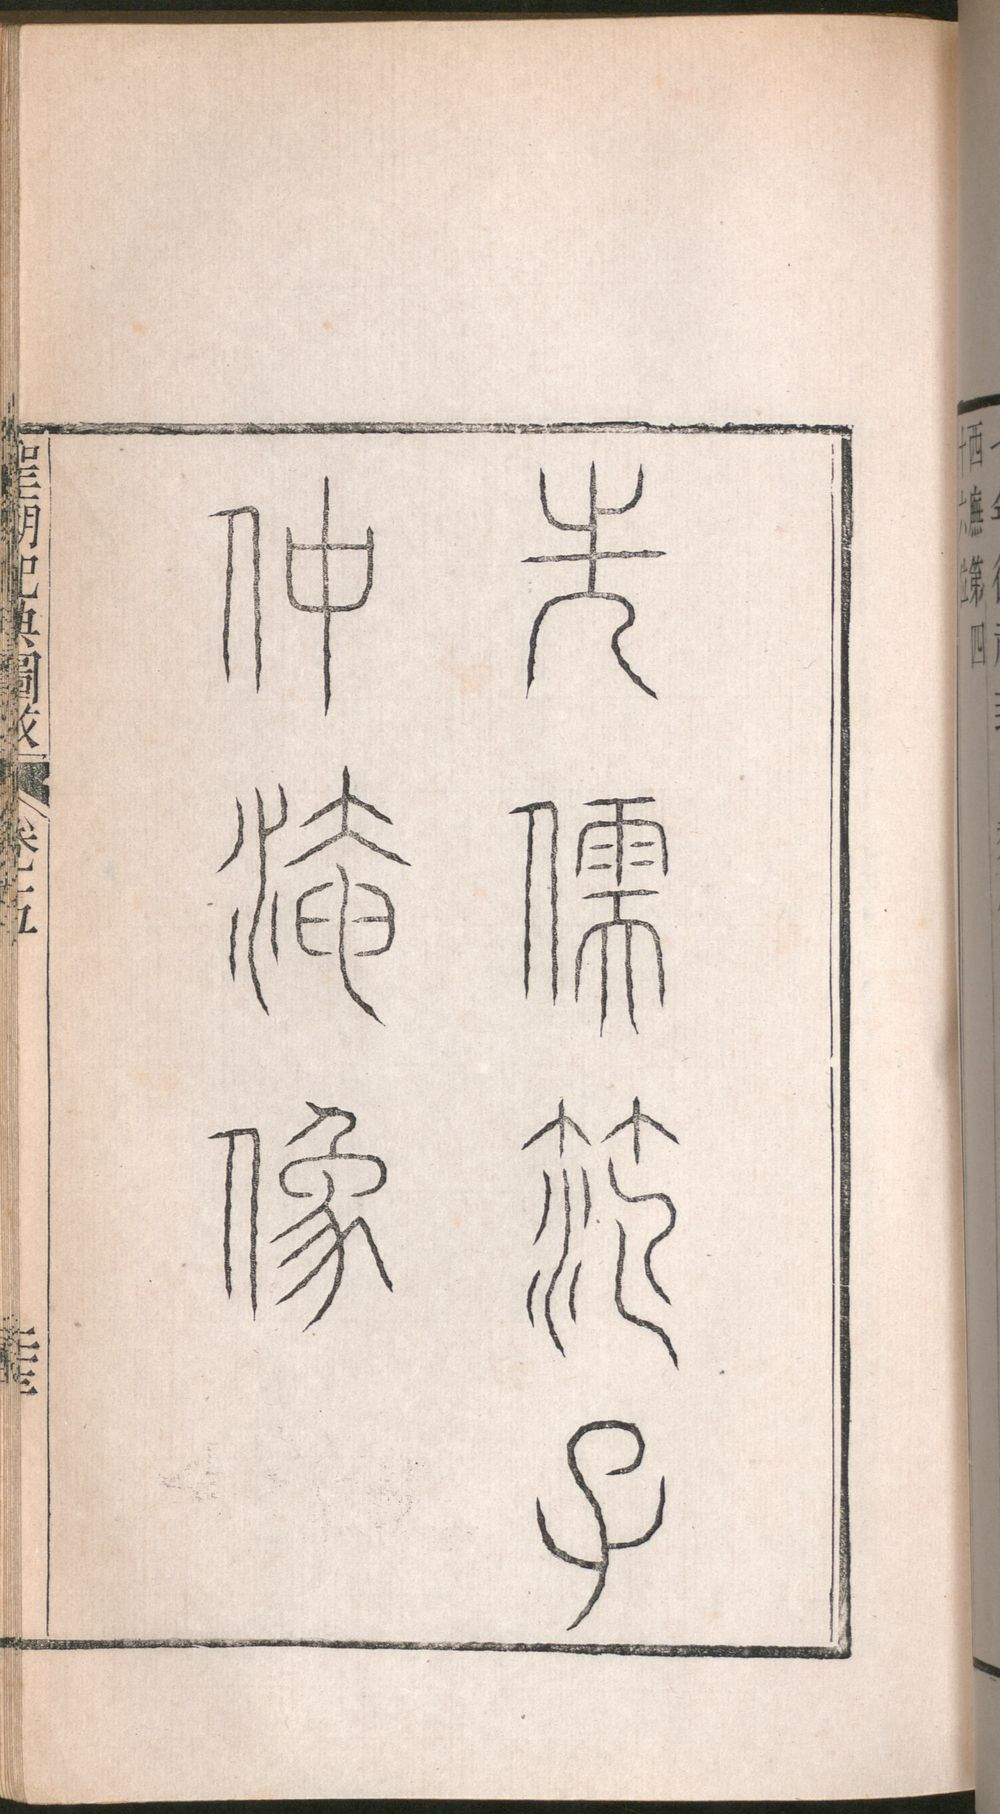 先儒范子
仲淹像
聖朝祀典圖攷
卷五
西廡第四
十六位